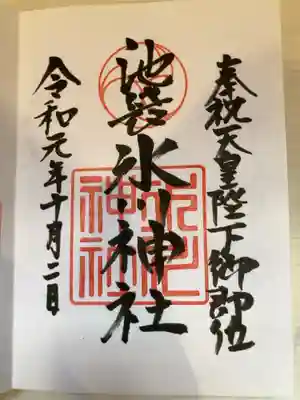 奉祝天皇陛下御即位
池袋氷川神社
令和元年十月二日
氷川
神社